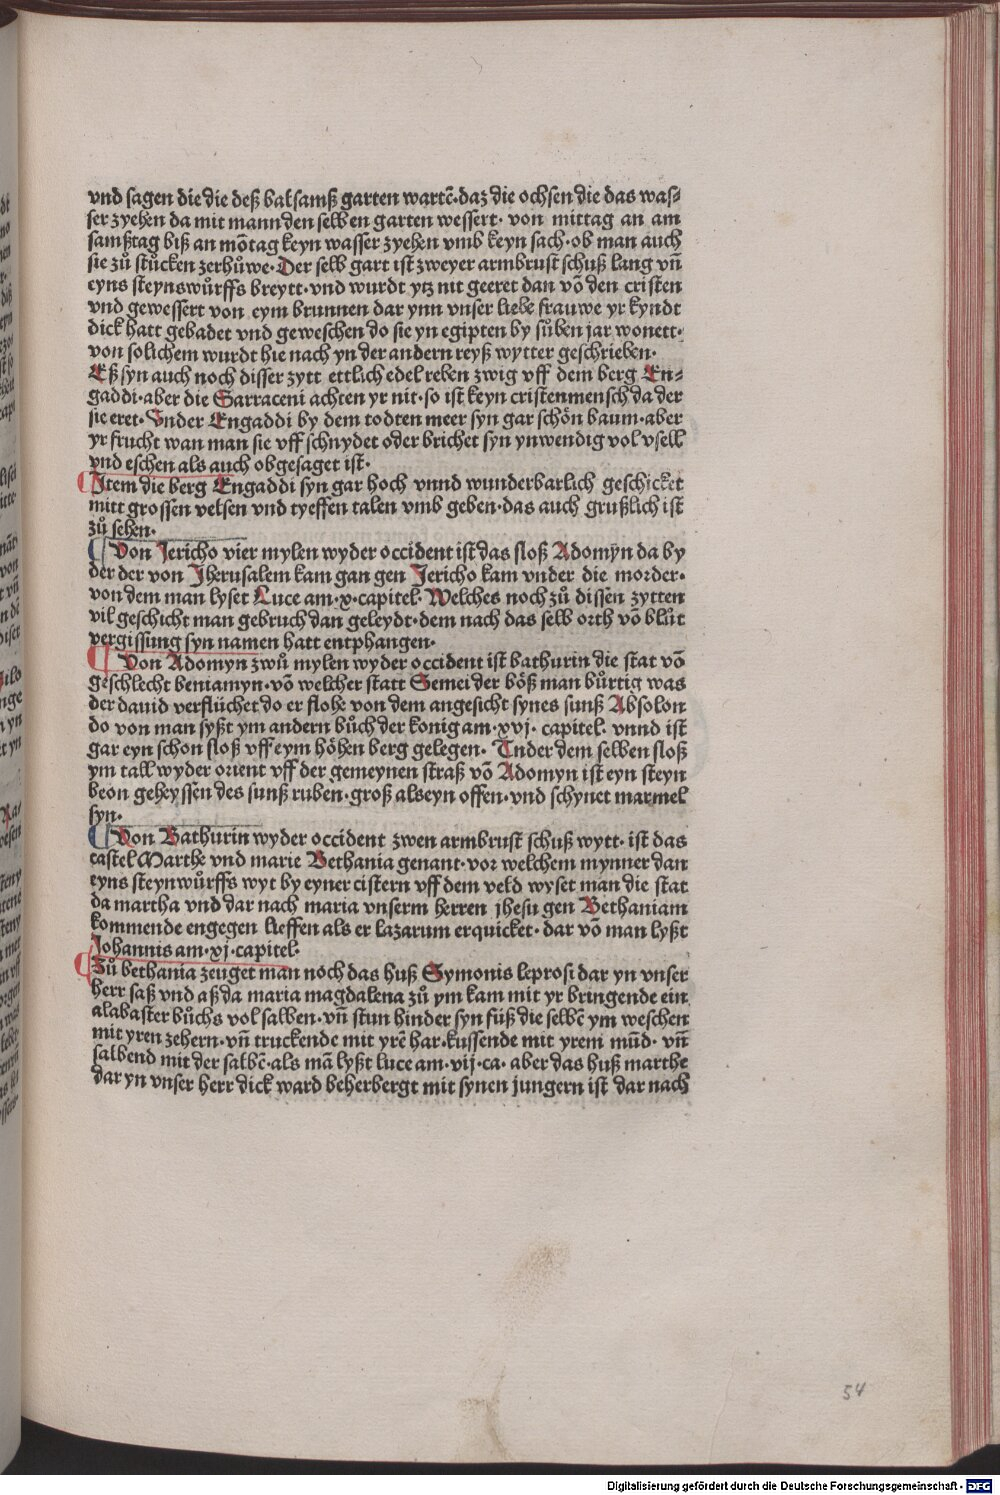 vnd sagen die die deß balsamß garten wartē·daz die ochsen die das was⸗
ser zyehen da mit mann den selben garten wessert· von mittag an am
samßtag biß an mōtag keyn wasser zyehen vmb keyn sach·ob man auch
sie zů stůcken zerhůwe·Der selb gart ist zweyer armbrust schuß lang vñ
eyns steynswůrffs breytt·vnd wurdt ytz nit geeret dan vō den cristen
vnd gewessert von eym brunnen dar ynn vnser liebe frauwe yr kyndt
dick hatt gebadet vnd geweschen do sie yn egipten by sůben jar wonett·
von solichem wurdt hie nach yn der andern reyß wytter geschrieben·
Eß syn auch noch disser zytt ettlich edel reben zwig vff dem berg En⸗
gaddi·aber die Sarraceni achten yr nit·so ist keyn cristenmensch da der
sie eret·Vnder Engaddi by dem todten meer syn gar schön baum·aber
yr frucht wan man sie vff schnydet oder brichet syn ynwendig vol vsell
vnd eschen als auch obgesaget ist·
Item die berg Engaddi syn gar hoch vnnd wunderbarlich geschicket
mitt grossen velsen vnd tyeffen talen vmb geben·das auch grußlich ist
zů sehen·
Von Jericho vier mylen wyder occident ist das sloß Adomyn da by
der der von Jherusalem kam gan gen Jericho kam vnder die morder·
von dem man lyset Luce am·x·capitel· Welches noch zů dissen zytten
vil geschicht man gebruch dan geleydt·dem nach das selb orth vō blůt
vergissung syn namen hatt entphangen·
Von Adomyn zwů mylen wyder occident ist bathurin die stat vō
geschlecht beniamyn·vō welcher statt Semei der böß man bůrtig was
der dauid verflůchet do er flohe von dem angesicht synes sunß Absolon
do von man syßt ym andern bůch der konig am·xvj· capitel· vnnd ist
gar eyn schon sloß vff eym höhen berg gelegen· Vnder dem selben sloß
ym tall wyder orient vff der gemeynen straß vō Adomyn ist eyn steyn
beon geheyssen des sunß ruben·groß als eyn offen·vnd schynet marmel
syn·
Von Bathurin wyder occident zwen armbrust schuß wytt· ist das
castel Marthe vnd marie Bethania genant·vor welchem mynner dan
eyns steynwůrffs wyt by eyner cistern vff dem veld wyset man die stat
da martha vnd dar nach maria vnserm herren jhesu gen Bethaniam
kommende engegen lieffen als er lazarum erquicket· dar vō man lyßt
Johannis am·xj·capitel·
Zů bethania zeuget man noch das huß Symonis leprosi dar yn vnser
herr saß vnd aß da maria magdalena zů ym kam mit yr bringende ein
alabaster bůchs vol salben·vñ stun hinder syn füß die selbē ym weschen
mit yren zehern·vñ truckende mit yrē har·kussende mit yrem mūd· vñ
salbend mit der salbē·als mā lyßt luce am·vij·ca· aber das huß marthe
dar yn vnser herr dick ward beherbergt mit synen jungern ist dar nach
54
Digitalisierung gefördert durch die Deutsche Forschungsgemeinschaft - DFG